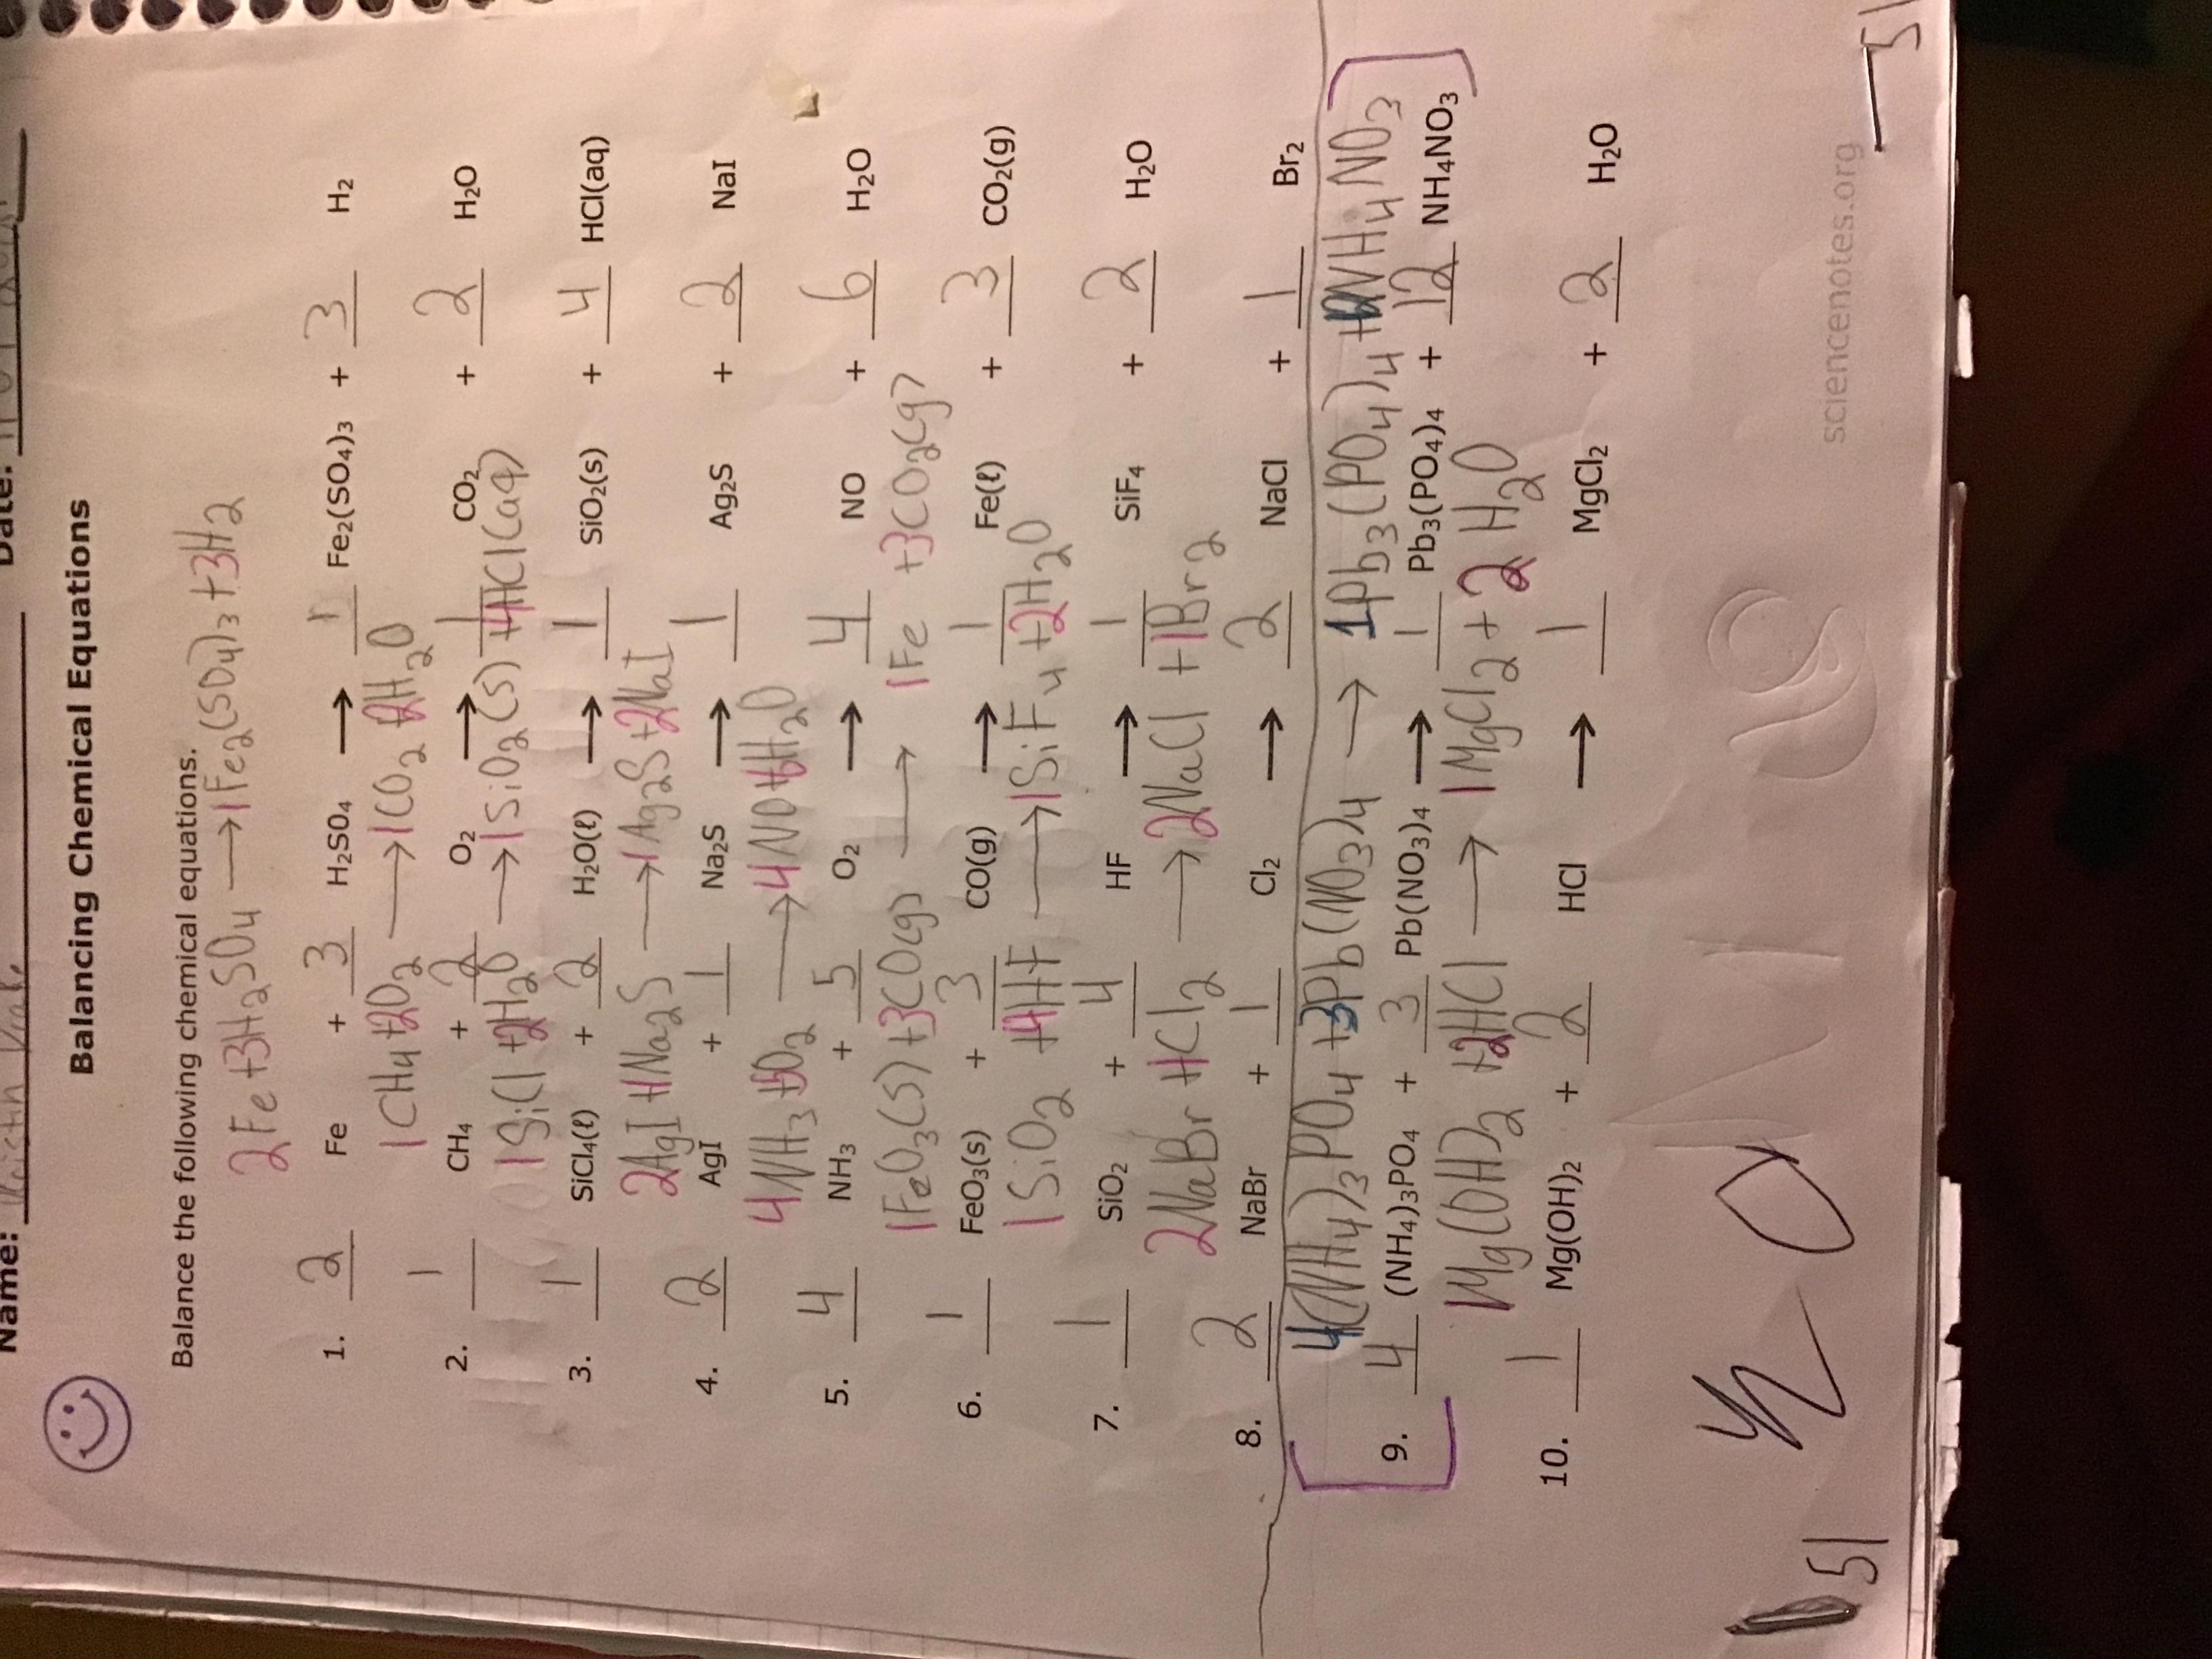 Name:
Date:
Balancing Chemical Equations
Balance the following chemical equations.
2Fe+3H2SO4 → 1Fe2(SO4)3+3H2
1. 2 Fe + 3 H2SO4 → 1 Fe2(SO4)3 + 3 H2
1CH4+2O2 → 1CO2+2H2O
2. 1 CH4 + 2 O2 → 1 CO2 + 2 H2O
1SiCl +2H2O → 1SiO2(s)+4HCl(aq)
3. 1 SiCl4(ℓ) + 2 H2O(ℓ) → 1 SiO2(s) + 4 HCl(aq)
2AgI+1Na2S → 1Ag2S+2NaI
4. 2 AgI + 1 Na2S → 1 Ag2S + 2 NaI
4NH3+5O2 → 4NO+6H2O
5. 4 NH3 + 5 O2 → 4 NO + 6 H2O
1FeO3(s)+3CO(g) → 1Fe +3CO2(g)
6. 1 FeO3(s) + 3 CO(g) → 1 Fe(ℓ) + 3 CO2(g)
1SiO2 +4HF → 1SiF4+2H2O
7. 1 SiO2 + 4 HF → 1 SiF4 + 2 H2O
2NaBr+1Cl2 → 2NaCl+1Br2
8. 2 NaBr + 1 Cl2 → 2 NaCl + 1 Br2
4(NH4)3PO4+3Pb(NO3)4 → 1Pb3(PO4)4+12NH4NO3
9. 4 (NH4)3PO4 + 3 Pb(NO3)4 → 1 Pb3(PO4)4 + 12 NH4NO3
1Mg(OH)2 +2HCl → 1MgCl2+2H2O
10. 1 Mg(OH)2 + 2 HCl → 1 MgCl2 + 2 H2O
sciencenotes.org
51
51